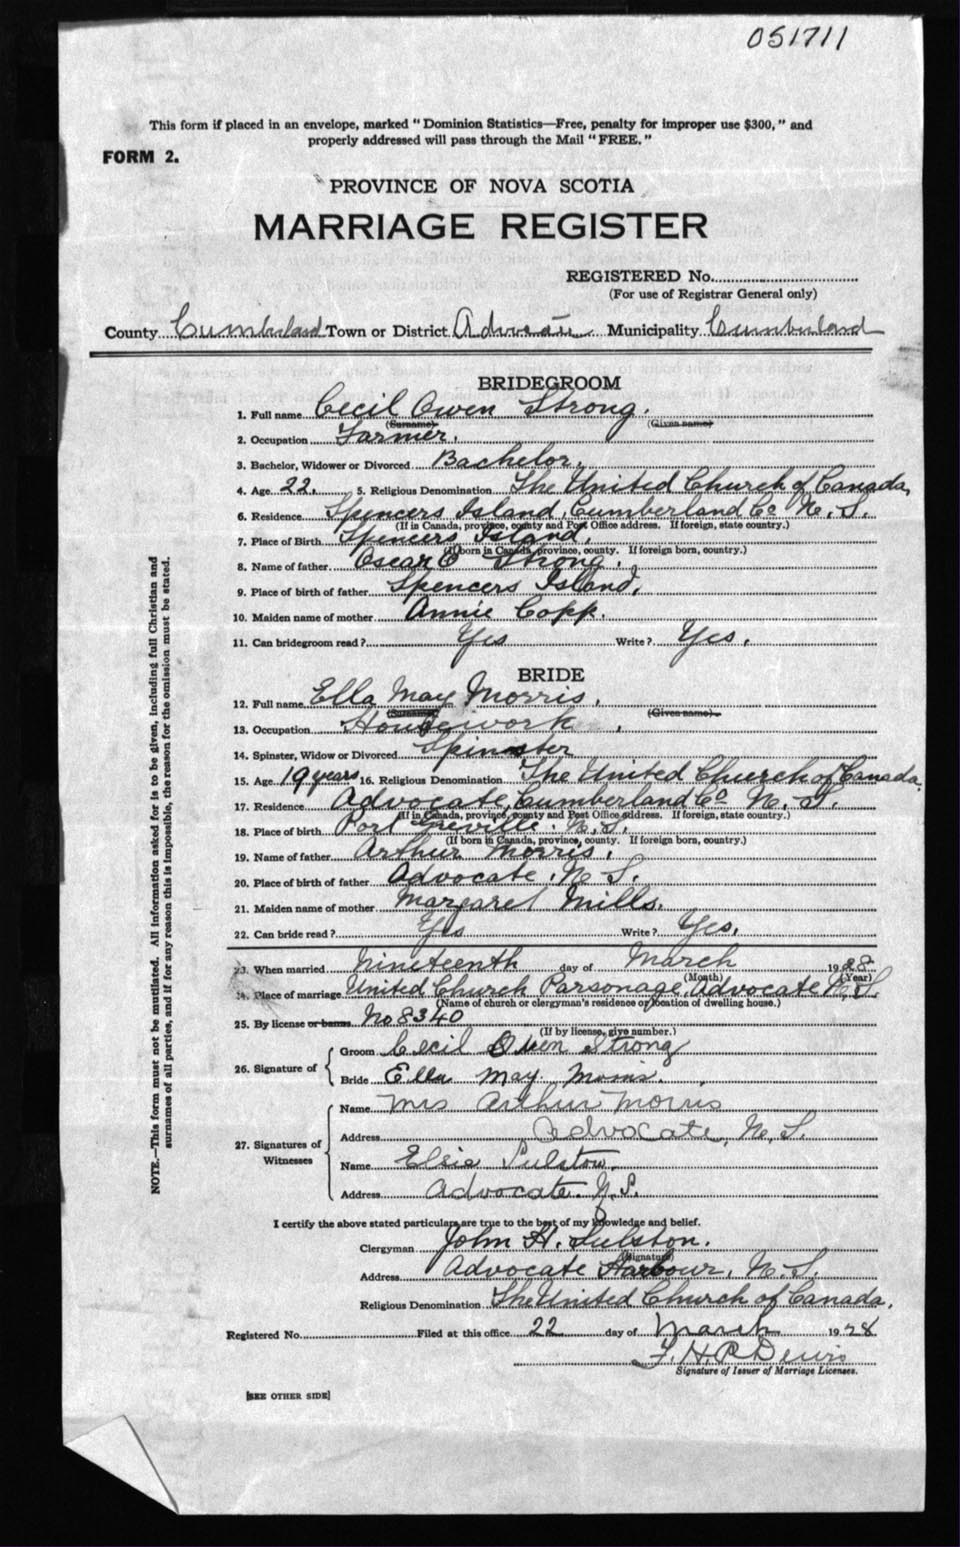 051711
This form if placed in an envelope, marked "Dominion Statistics—Free, penalty for improper use $300," and
properly addressed will pass through the Mail "FREE."
FORM 2.
PROVINCE OF NOVA SCOTIA
MARRIAGE REGISTER
REGISTERED No.
(For use of Registrar General only)
County Cumberland Town or District Advocate Municipality Cumberland
BRIDEGROOM
1. Full name Cecil Owen Strong.
(Surname) (Given name)
2. Occupation Farmer.
3. Bachelor, Widower or Divorced Bachelor.
4. Age 22. 5. Religious Denomination The United Church of Canada,
6. Residence Spencers Island, Cumberland Co N. S.
(If in Canada, province, county and Post Office address. If foreign, state country.)
7. Place of Birth Spencers Island,
(If born in Canada, province, county. If foreign born, country.)
8. Name of father Oscar O Strong.
9. Place of birth of father Spencers Island,
10. Maiden name of mother Annie Copp.
11. Can bridegroom read? Yes Write? Yes.
BRIDE
12. Full name Ella May Morris.
(Surname) (Given name)
13. Occupation Housework.
14. Spinster, Widow or Divorced Spinster
15. Age 19 years 16. Religious Denomination The United Church of Canada,
17. Residence Advocate, Cumberland Co. N. S.
(If in Canada, province, county and Post Office address. If foreign, state country.)
18. Place of birth Port Greville. N. S.
(If born in Canada, province, county. If foreign born, country.)
19. Name of father Arthur Morris.
20. Place of birth of father Advocate. N. S.
21. Maiden name of mother Margaret Mills.
22. Can bride read? Yes Write? Yes.
23. When married Nineteenth day of March 1928
(Month) (Year)
24. Place of marriage United Church Parsonage, Advocate N. S.
(Name of church or clergyman's residence or location of dwelling house.)
25. By license or banns No 8340
(If by license, give number.)
26. Signature of
Groom Cecil Owen Strong
Bride Ella May Morris.
27. Signatures of Witnesses
Name Mrs Arthur Morris
Address Advocate, N. S.
Name Elsie
Address Advocate. N. S.
I certify the above stated particulars are true to the best of my knowledge and belief.
Clergyman John H.
(Signature)
Address Advocate Harbour, N. S.
Religious Denomination The United Church of Canada.
Registered No. Filed at this office 22 day of March 1928
F. H. P. Dewis
Signature of Issuer of Marriage Licenses.
[SEE OTHER SIDE]
NOTE.—This form must not be mutilated. All information asked for is to be given, including full Christian and
surnames of all parties, and if for any reason this is impossible, the reason for the omission must be stated.